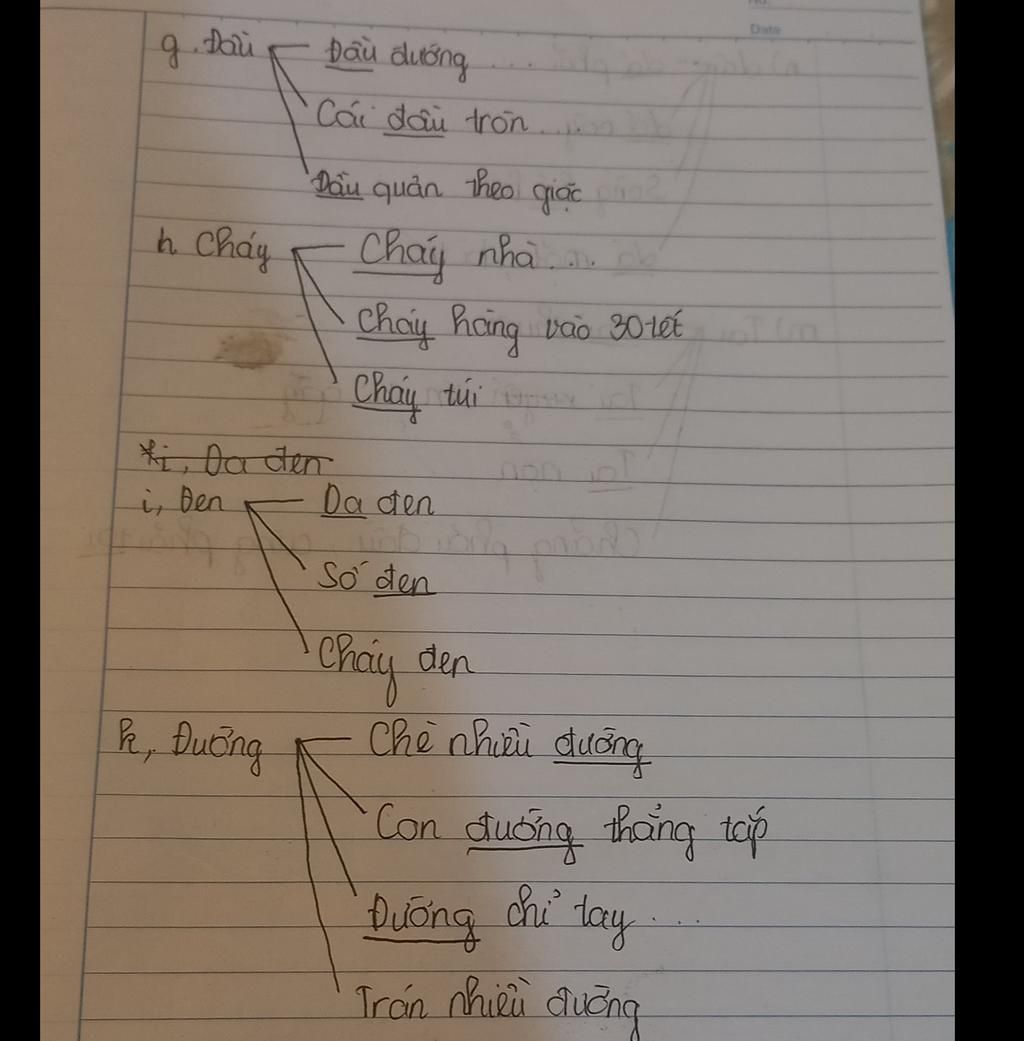 Date
g. Đầu Đầu đường ...
Cái đầu tròn ...
Đầu quân theo giặc
h. Cháy Cháy nhà ...
Cháy hàng vào 30 tết
Cháy túi
*i, Da đen
i, Đen Da đen
Số đen
Cháy đen
k, Đường Chè nhiều đường
Con đường thẳng tắp
Đường chỉ tay ...
Trán nhiều đường